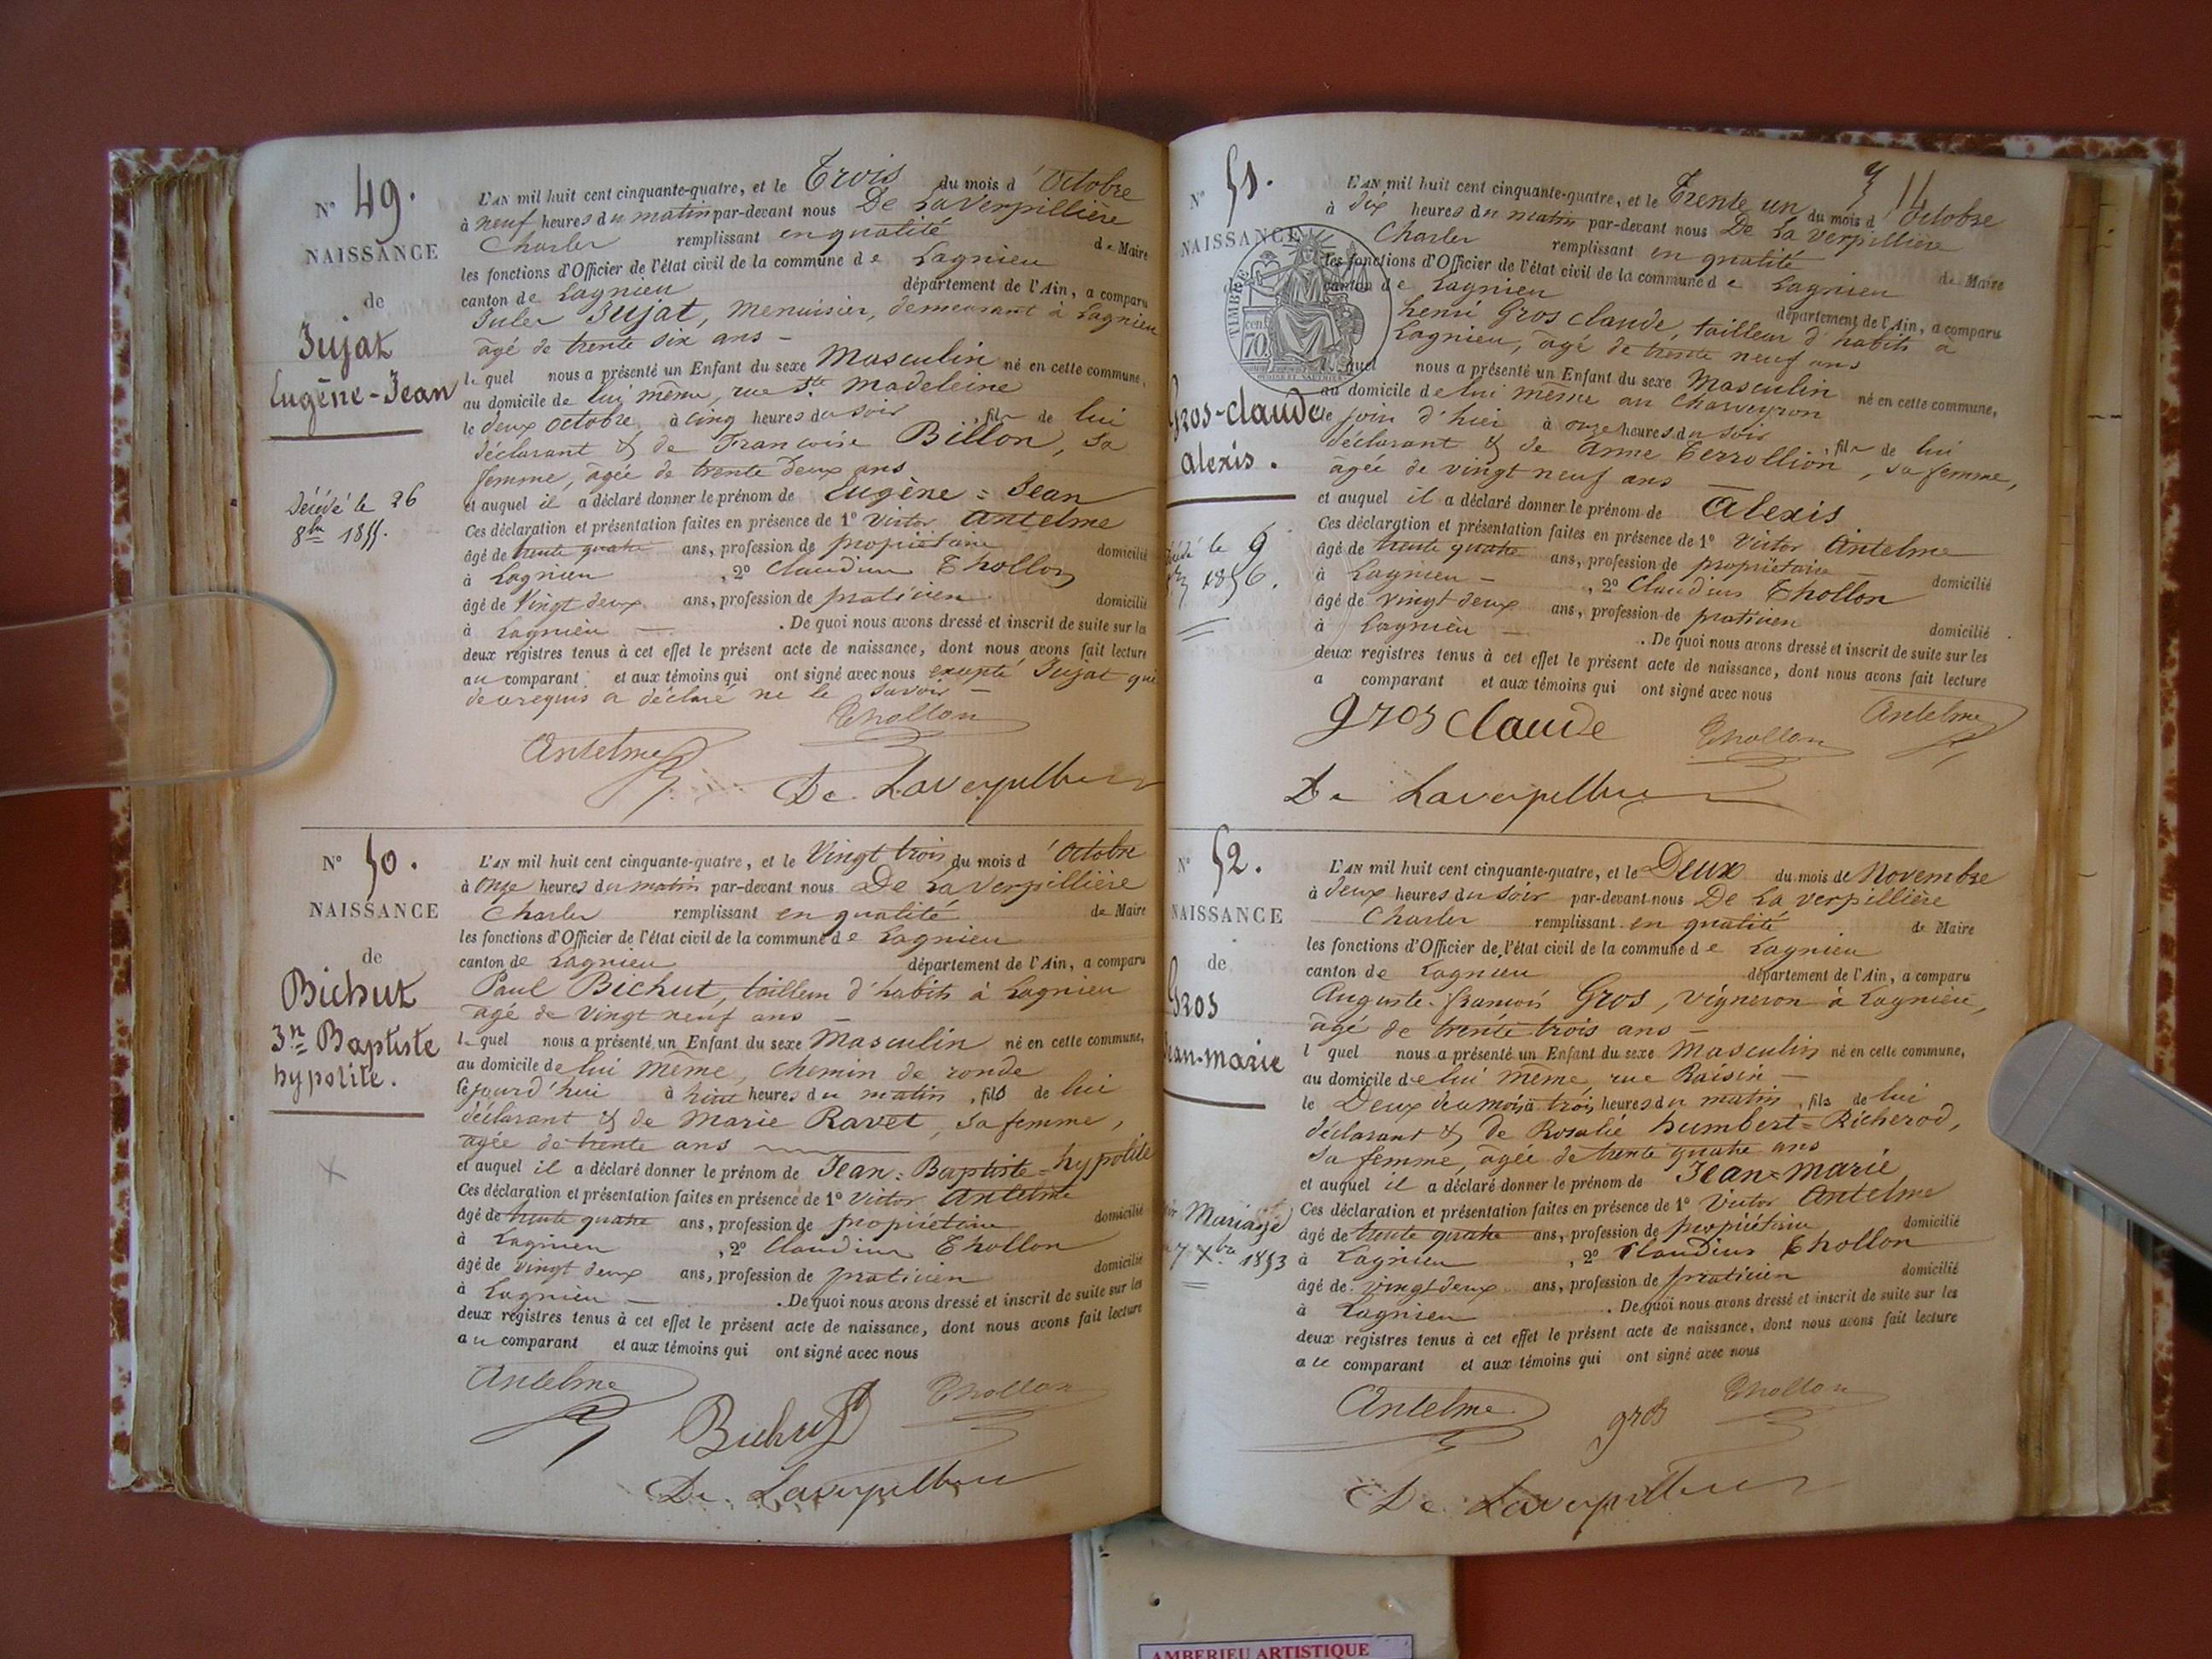 N° 49.
NAISSANCE
de
Jujat
Eugène-Jean
Décédé le 26
8bre 1855.
L'AN mil huit cent cinquante-quatre, et le Trois du mois d'Octobre
à neuf heures du matin par-devant nous De LaVerpillière
Charles remplissant en qualité de Maire
les fonctions d'Officier de l'état civil de la commune de Lagnieu
canton de Lagnieu département de l'Ain, a comparu
Jules Jujat, Menuisier, demeurant à Lagnieu
âgé de trente six ans —
lequel nous a présenté un Enfant du sexe Masculin né en cette commune,
au domicile de lui même, rue Ste Madeleine
le deux octobre à cinq heures du soir, fils de lui
déclarant & de Françoise Billon, sa
femme, âgée de trente deux ans
et auquel il a déclaré donner le prénom de Eugène=Jean
Ces déclaration et présentation faites en présence de 1° Victor Antelme
âgé de trente quatre ans, profession de propriétaire domicilié
à Lagnieu, 2° Claudius Thollon
âgé de Vingt deux ans, profession de praticien domicilié
à Lagnieu — . De quoi nous avons dressé et inscrit de suite sur les
deux registres tenus à cet effet le présent acte de naissance, dont nous avons fait lecture
au comparant et aux témoins qui ont signé avec nous excepté Jujat qui
de ce requis a déclaré ne le savoir —
Thollon
Antelme
De Laverpillière
N° 50.
NAISSANCE
de
Bichut
Jn Baptiste
hypolite.
L'AN mil huit cent cinquante-quatre, et le Vingt trois du mois d'Octobre
à onze heures du matin par-devant nous De LaVerpillière
Charles remplissant en qualité de Maire
les fonctions d'Officier de l'état civil de la commune de Lagnieu
canton de Lagnieu département de l'Ain, a comparu
Paul Bichut, tailleur d'habits à Lagnieu
âgé de Vingt neuf ans —
lequel nous a présenté un Enfant du sexe Masculin né en cette commune,
au domicile de lui même, chemin de ronde
cejourd'hui à huit heures du matin, fils de lui
déclarant & de Marie Ravet, sa femme,
âgée de trente ans
et auquel il a déclaré donner le prénom de Jean=Baptiste=hypolite
Ces déclaration et présentation faites en présence de 1° Victor Antelme
âgé de trente quatre ans, profession de propriétaire domicilié
à Lagnieu, 2° Claudius Thollon
âgé de vingt deux ans, profession de praticien domicilié
à Lagnieu — . De quoi nous avons dressé et inscrit de suite sur les
deux registres tenus à cet effet le présent acte de naissance, dont nous avons fait lecture
au comparant et aux témoins qui ont signé avec nous
Antelme
Thollon
Bichut
De Laverpillière
14
N° 51.
NAISSANCE
TIMBRE
70
cent
Gros-claude
Alexis.
le 9
1856.
L'AN mil huit cent cinquante-quatre, et le Trente un du mois d'Octobre
à dix heures du matin par-devant nous De La Verpillière
Charles remplissant en qualité de Maire
les fonctions d'Officier de l'état civil de la commune de Lagnieu
canton de Lagnieu département de l'Ain, a comparu
henri Gros claude, tailleur d'habits à
Lagnieu, âgé de trente neuf ans
lequel nous a présenté un Enfant du sexe Masculin né en cette commune,
au domicile de lui même au Charveyron
le jour d'hier à onze heures du soir, fils de lui
déclarant & de Anne Terrollion, sa femme,
âgée de vingt neuf ans —
et auquel il a déclaré donner le prénom de Alexis
Ces déclaration et présentation faites en présence de 1° Victor Antelme
âgé de trente quatre ans, profession de propriétaire domicilié
à Lagnieu —, 2° Claudius Thollon
âgé de vingt deux ans, profession de praticien domicilié
à Lagnieu — . De quoi nous avons dressé et inscrit de suite sur les
deux registres tenus à cet effet le présent acte de naissance, dont nous avons fait lecture
a comparant et aux témoins qui ont signé avec nous
gros claude
Thollon
Antelme
De Laverpillière
N° 52.
NAISSANCE
de
Gros
Jean-marie
Mariage
7 Xbre 1853
L'AN mil huit cent cinquante-quatre, et le Deux du mois de Novembre
à deux heures du soir par-devant nous De La Verpillière
Charles remplissant en qualité de Maire
les fonctions d'Officier de l'état civil de la commune de Lagnieu
canton de Lagnieu département de l'Ain, a comparu
Auguste-françois Gros, vigneron à Lagnieu,
âgé de trente trois ans —
lequel nous a présenté un Enfant du sexe Masculin né en cette commune,
au domicile de lui même rue Raisin —
le Deux du mois à trois heures du matin, fils de lui
déclarant & de Rosalie humbert=Richerod,
sa femme, âgée de trente quatre ans
et auquel il a déclaré donner le prénom de Jean=marie
Ces déclaration et présentation faites en présence de 1° Victor Antelme
âgé de trente quatre ans, profession de propriétaire domicilié
à Lagnieu, 2° Claudius Thollon
âgé de vingt deux ans, profession de praticien domicilié
à Lagnieu . De quoi nous avons dressé et inscrit de suite sur les
deux registres tenus à cet effet le présent acte de naissance, dont nous avons fait lecture
au comparant et aux témoins qui ont signé avec nous
Antelme
gros
Thollon
De Laverpillière
AMBERIEU ARTISTIQUE